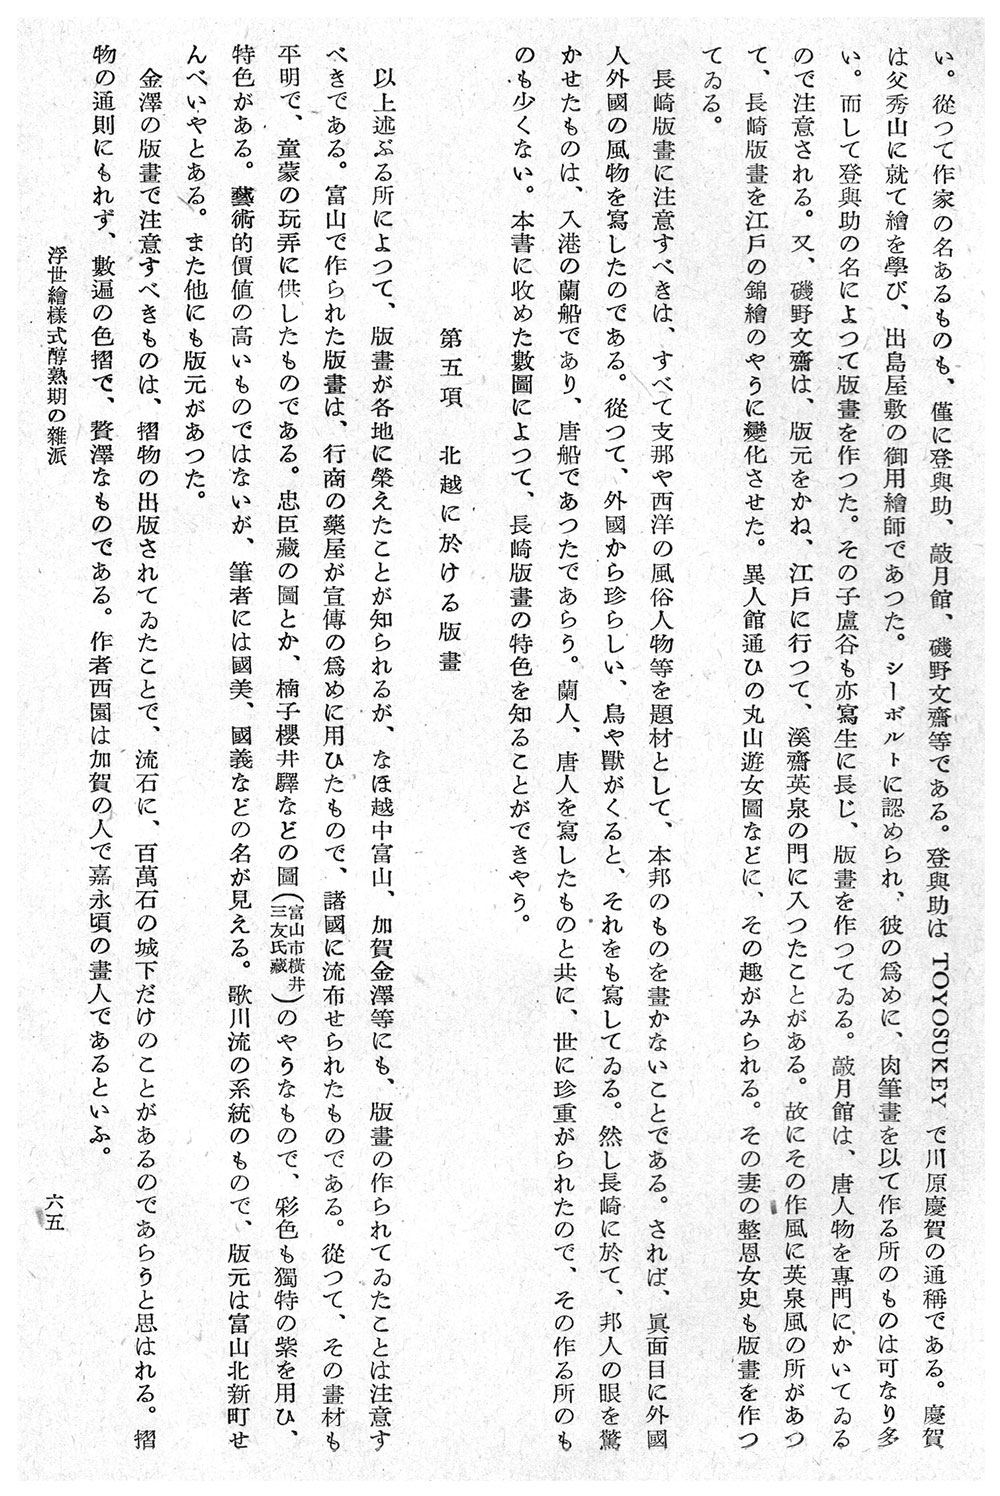 い。從つて作家の名あるものも、僅に登與助、敲月館、磯野文齋等である。登與助は TOYOSUKEY で川原慶賀の通稱である。慶賀
は父秀山に就て繪を學び、出島屋敷の御用繪師であつた。シーボルトに認められ、彼の爲めに、肉筆畫を以て作る所のものは可なり多
い。而して登與助の名によつて版畫を作つた。その子盧谷も亦寫生に長じ、版畫を作つてゐる。敲月館は、唐人物を專門にかいてゐる
ので注意される。又、磯野文齋は、版元をかね、江戸に行つて、溪齋英泉の門に入つたことがある。故にその作風に英泉風の所があつ
て、長崎版畫を江戸の錦繪のやうに變化させた。異人館通ひの丸山遊女圖などに、その趣がみられる。その妻の整恩女史も版畫を作つ
てゐる。
長崎版畫に注意すべきは、すべて支那や西洋の風俗人物等を題材として、本邦のものを畫かないことである。されば、眞面目に外國
人外國の風物を寫したのである。從つて、外國から珍らしい、鳥や獸がくると、それをも寫してゐる。然し長崎に於て、邦人の眼を驚
かせたものは、入港の蘭船であり、唐船であつたであらう。蘭人、唐人を寫したものと共に、世に珍重がられたので、その作る所のも
のも少くない。本書に收めた數圖によつて、長崎版畫の特色を知ることができやう。
第五項 北越に於ける版畫
以上述ぶる所によつて、版畫が各地に榮えたことが知られるが、なほ越中富山、加賀金澤等にも、版畫の作られてゐたことは注意す
べきである。富山で作られた版畫は、行商の藥屋が宣傳の爲めに用ひたもので、諸國に流布せられたものである。從つて、その畫材も
平明で、童蒙の玩弄に供したものである。忠臣藏の圖とか、楠子櫻井驛などの圖(富山市橫井三友氏藏)のやうなもので、彩色も獨特の紫を用ひ、
特色がある。藝術的價値の高いものではないが、筆者には國美、國義などの名が見える。歌川流の系統のもので、版元は富山北新町せ
んべいやとある。また他にも版元があつた。
金澤の版畫で注意すべきものは、摺物の出版されてゐたことで、流石に、百萬石の城下だけのことがあるのであらうと思はれる。摺
物の通則にもれず、數遍の色摺で、贅澤なものである。作者西園は加賀の人で嘉永頃の畫人であるといふ。
浮世繪樣式醇熟期の雜派
六五